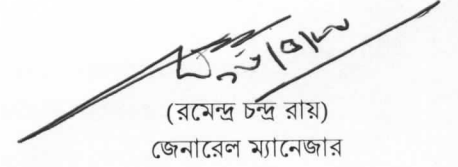 (রমেন্দ্র চন্দ্র রায়)
জেনারেল ম্যানেজার